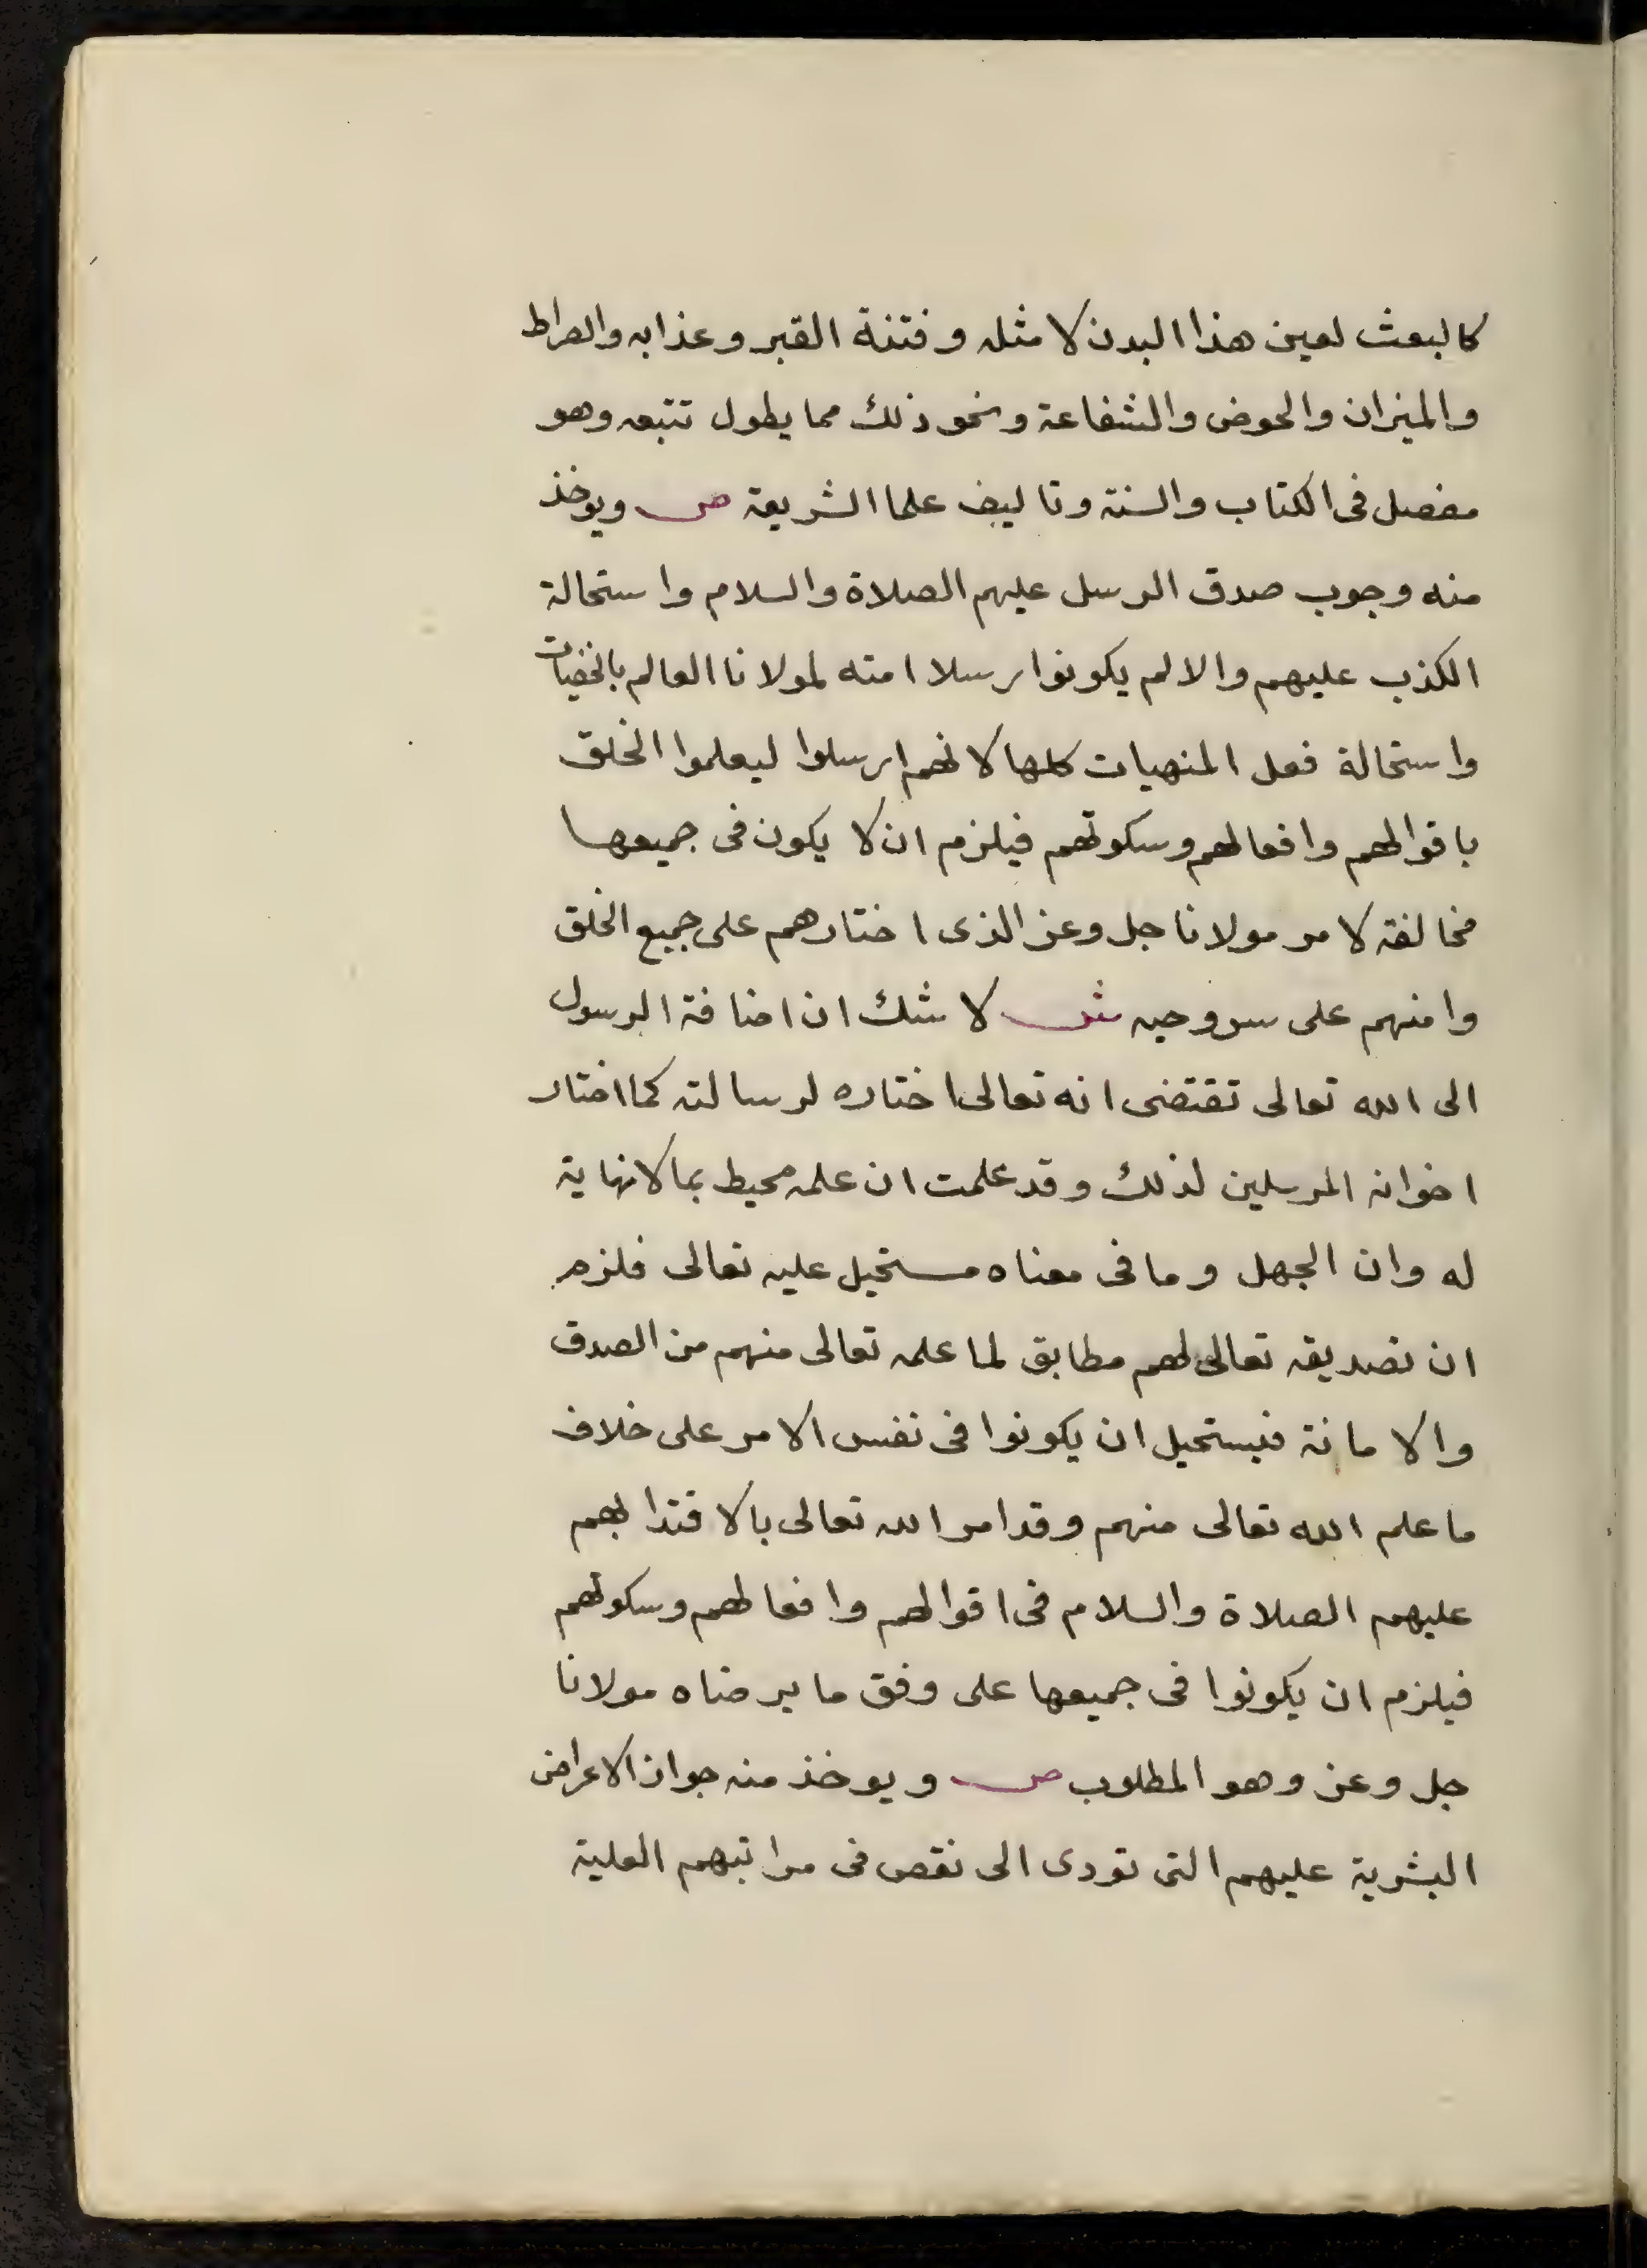 كالبعث لعين هذا البدن لا مثله وفتنة القبر وعذابه والصراط
والميزان والحوض والشفاعة ونحو ذلك مما يطول تتبعه وهو
مفصل فى الكتاب والسنة وتاليف علما الشريعة ص ويوخذ
منه وجوب صدق الرسل عليهم الصلاة والسلام واستحالة
الكذب عليهم والا لم يكونوا رسلا امنه لمولانا العالم بالخفيات
واستحالة فعل المنهيات كلها لانهم ارسلوا ليعلموا الخلق
باقوالهم وافعالهم وسكوتهم فيلزم ان لا يكون فى جميعها
مخالفة لامر مولانا جل وعز الذى اختارهم على جميع الخلق
وامنهم على سر وحيه ش لا شك ان اضافة الرسول
الى الله تعالى تقتضى انه تعالى اختاره لرسالته كما اختار
اخوانه المرسلين لذلك وقد علمت ان علمه محيط بما لا نهاية
له وان الجهل وما فى معناه مستحيل عليه تعالى فلزم
ان تصديقه تعالى لهم مطابق لما علمه تعالى منهم من الصدق
والامانة فيستحيل ان يكونوا فى نفس الامر على خلاف
ما علم الله تعالى منهم وقد امر الله تعالى بالاقتدا بهم
عليهم الصلاة والسلام فى اقوالهم وافعالهم وسكوتهم
فيلزم ان يكونوا فى جميعها على وفق ما يرضاه مولانا
جل وعز وهو المطلوب ص ويوخذ منه جواز الاعراض
البشرية عليهم التى تودى الى نقص فى مراتبهم العلية